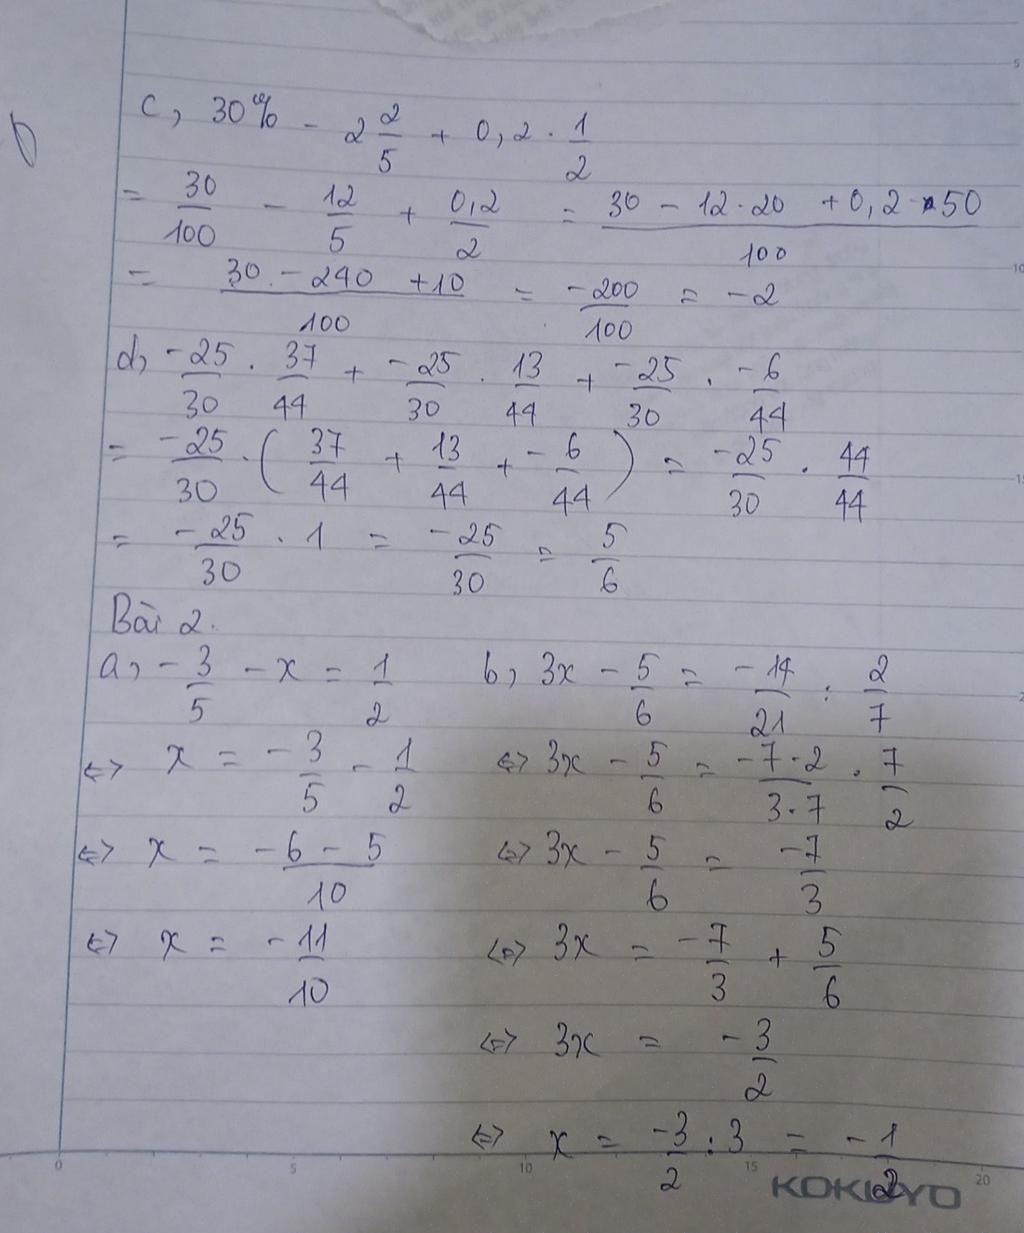 c, 30% - 2 2/5 + 0,2 . 1/2
= 30/100 - 12/5 + 0,2/2 = (30 - 12.20 + 0,2.50)/100
= (30 - 240 + 10)/100 = -200/100 = -2
d, -25/30 . 37/44 + -25/30 . 13/44 + -25/30 . -6/44
= -25/30 . (37/44 + 13/44 + -6/44) = -25/30 . 44/44
= -25/30 . 1 = -25/30 = 5/6
Bài 2.
a, -3/5 - x = 1/2
<=> x = -3/5 - 1/2
<=> x = (-6 - 5)/10
<=> x = -11/10
b, 3x - 5/6 = -14/21 : 2/7
<=> 3x - 5/6 = (-7.2)/(3.7) . 7/2
<=> 3x - 5/6 = -7/3
<=> 3x = -7/3 + 5/6
<=> 3x = -3/2
<=> x = -3/2 : 3 = -1/2
0 5 10 15 20
KOKUYO